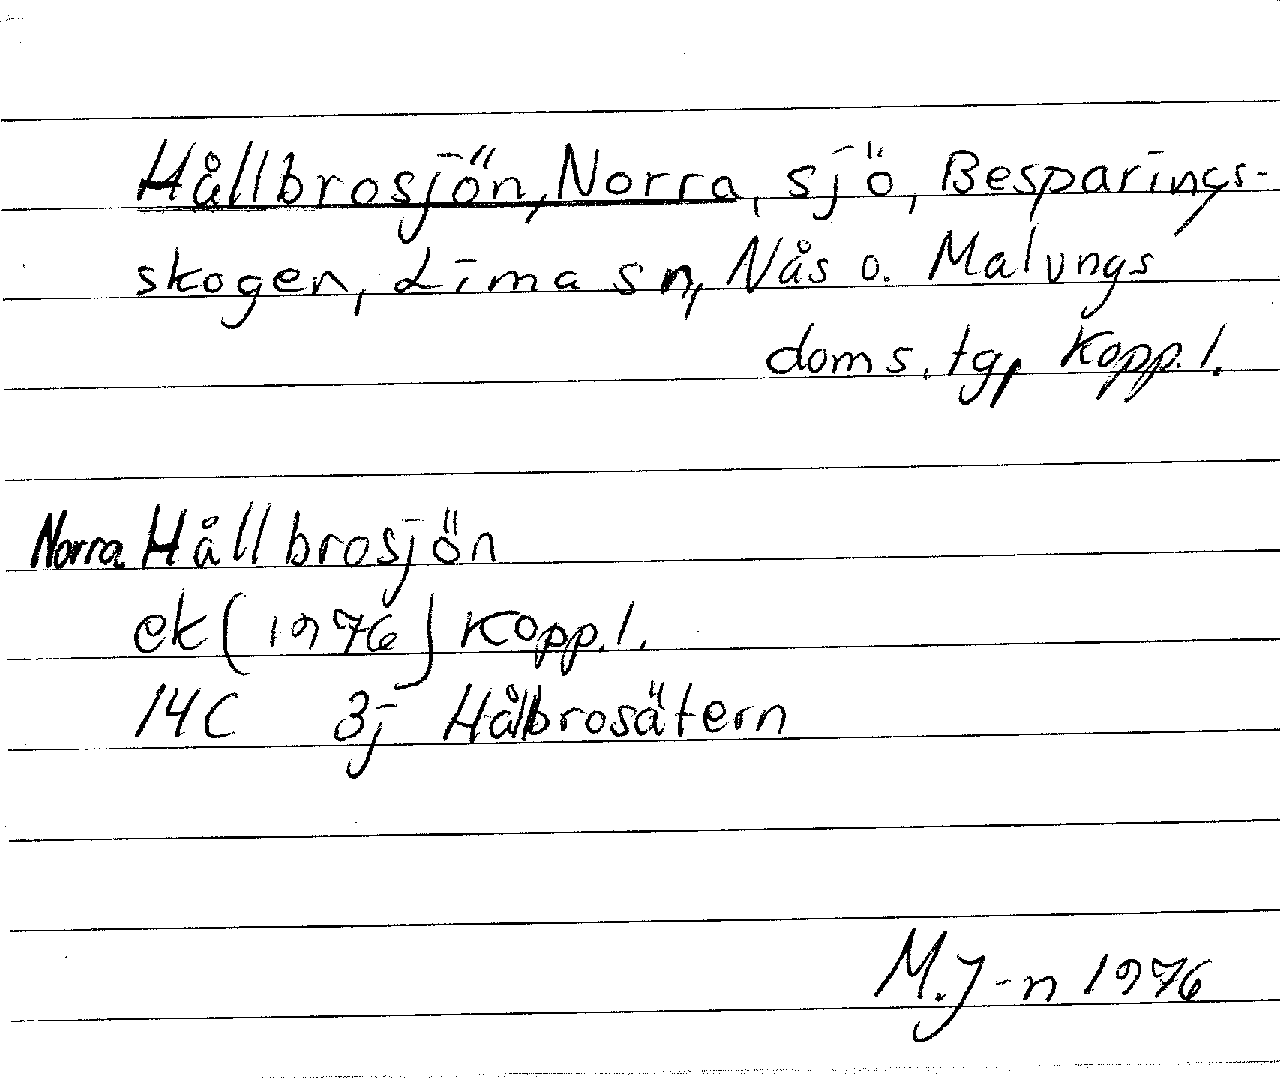 Hållbrosjön, Norra, sjö, Besparings-
skogen, Lima sn, Nås o. Malungs
doms. tg, Kopp. l.
Norra Hållbrosjön
ek (1976) Kopp. l.
14C 3j Hållbrosätern
M.J-n 1976